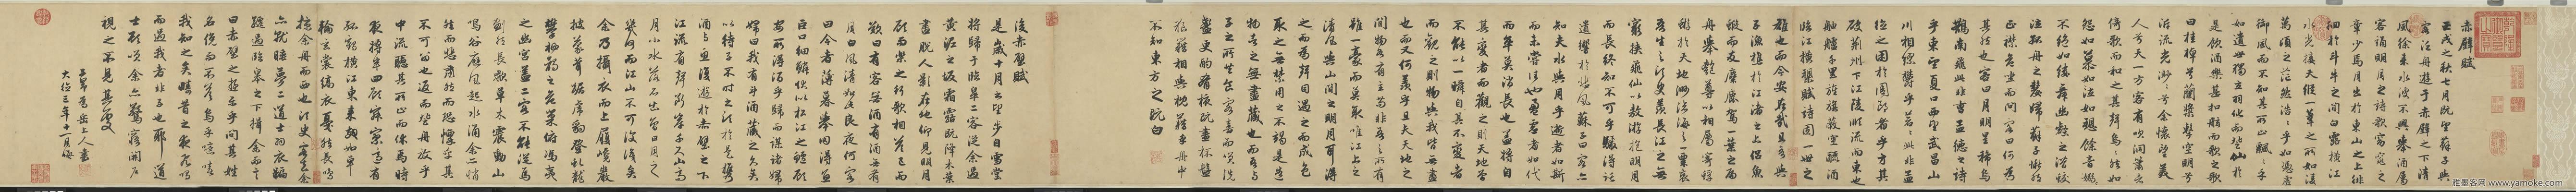 赤壁賦
壬戌之秋七月既望蘇子與
客泛舟遊于赤壁之下清
風徐來水波不興舉酒屬
客誦明月之詩歌窈窕之
章少焉月出於東山之上徘
徊於斗牛之間白露橫江
水光接天縱一葦之所如凌
萬頃之茫然浩浩乎如憑虛
御風而不知其所止飄飄乎
如遺世獨立羽化而登仙於
是飲酒樂甚扣舷而歌之歌
曰桂棹兮蘭槳擊空明兮
泝流光渺渺兮余懷望美
人兮天一方客有吹洞簫者
倚歌而和之其聲烏烏然如
怨如慕如泣如訴餘音嫋嫋
不絕如縷舞幽壑之潛蛟
泣孤舟之嫠婦蘇子愀然
正襟危坐而問客曰何為
其然也客曰月明星稀烏
鵲南飛此非曹孟德之詩
乎東望夏口西望武昌山
川相繆鬱乎蒼蒼此非孟
德之困於周郎者乎方其
破荊州下江陵順流而東也
舳艫千里旌旗蔽空釃酒
臨江橫槊賦詩固一世之
雄也而今安在哉況吾與
子漁樵於江渚之上侶魚
蝦而友麋鹿駕一葉之扁
舟舉匏尊以相屬寄蜉
蝣於天地渺滄海之一粟哀
吾生之須臾羨長江之無
窮挾飛仙以遨遊抱明月
而長終知不可乎驟得託
遺響於悲風蘇子曰客亦
知夫水與月乎逝者如斯
而未嘗往也盈虛者如代
而卒莫消長也蓋將自
其變者而觀之則天地曾
不能以一瞬自其不變者
而觀之則物與我皆無盡
也而又何羨乎且夫天地之
間物各有主苟非吾之所有
雖一毫而莫取惟江上之
清風與山間之明月耳得
之而為聲目遇之而成色
取之無禁用之不竭是造
物者之無盡藏也而吾與
子之所共食客喜而笑洗
盞更酌肴核既盡杯盤
狼藉相與枕藉乎舟中
不知東方之既白
後赤壁賦
是歲十月之望步自雪堂
將歸于臨皋二客從余過
黃泥之坂霜露既降木葉
盡脫人影在地仰見明月
顧而樂之行歌相答已而
歎曰有客無酒有酒無肴
月白風清如此良夜何客
曰今者薄暮舉網得魚
巨口細鱗狀似松江之鱸顧
安所得酒乎歸而謀諸婦
婦曰我有斗酒藏之久矣
以待子不時之須於是攜
酒與魚復遊於赤壁之下
江流有聲斷岸千尺山高
月小水落石出曾日月之
幾何而江山不可復識矣
余乃攝衣而上履巉巖
披蒙茸踞虎豹登虬龍
攀栖鶻之危巢俯馮夷
之幽宮蓋二客不能從焉
劃然長嘯草木震動山
鳴谷應風起水涌余亦悄
然而悲肅然而恐凜乎其
不可留也返而登舟放乎
中流聽其所止而休焉時
夜將半四顧寂寥適有
孤鶴橫江東來翅如車
輪玄裳縞衣戛然長鳴
掠余舟而西也須臾客去余
亦就睡夢二道士羽衣翩
躚過臨皋之下揖余而言
曰赤壁之遊樂乎問其姓
名俛而不答嗚乎噫嘻
我知之矣疇昔之夜飛鳴
而過我者非子也耶道
士顧笑余亦驚寤開戶
視之不見其處
大德三年十一月
雅墨客网-www.yamoke.com